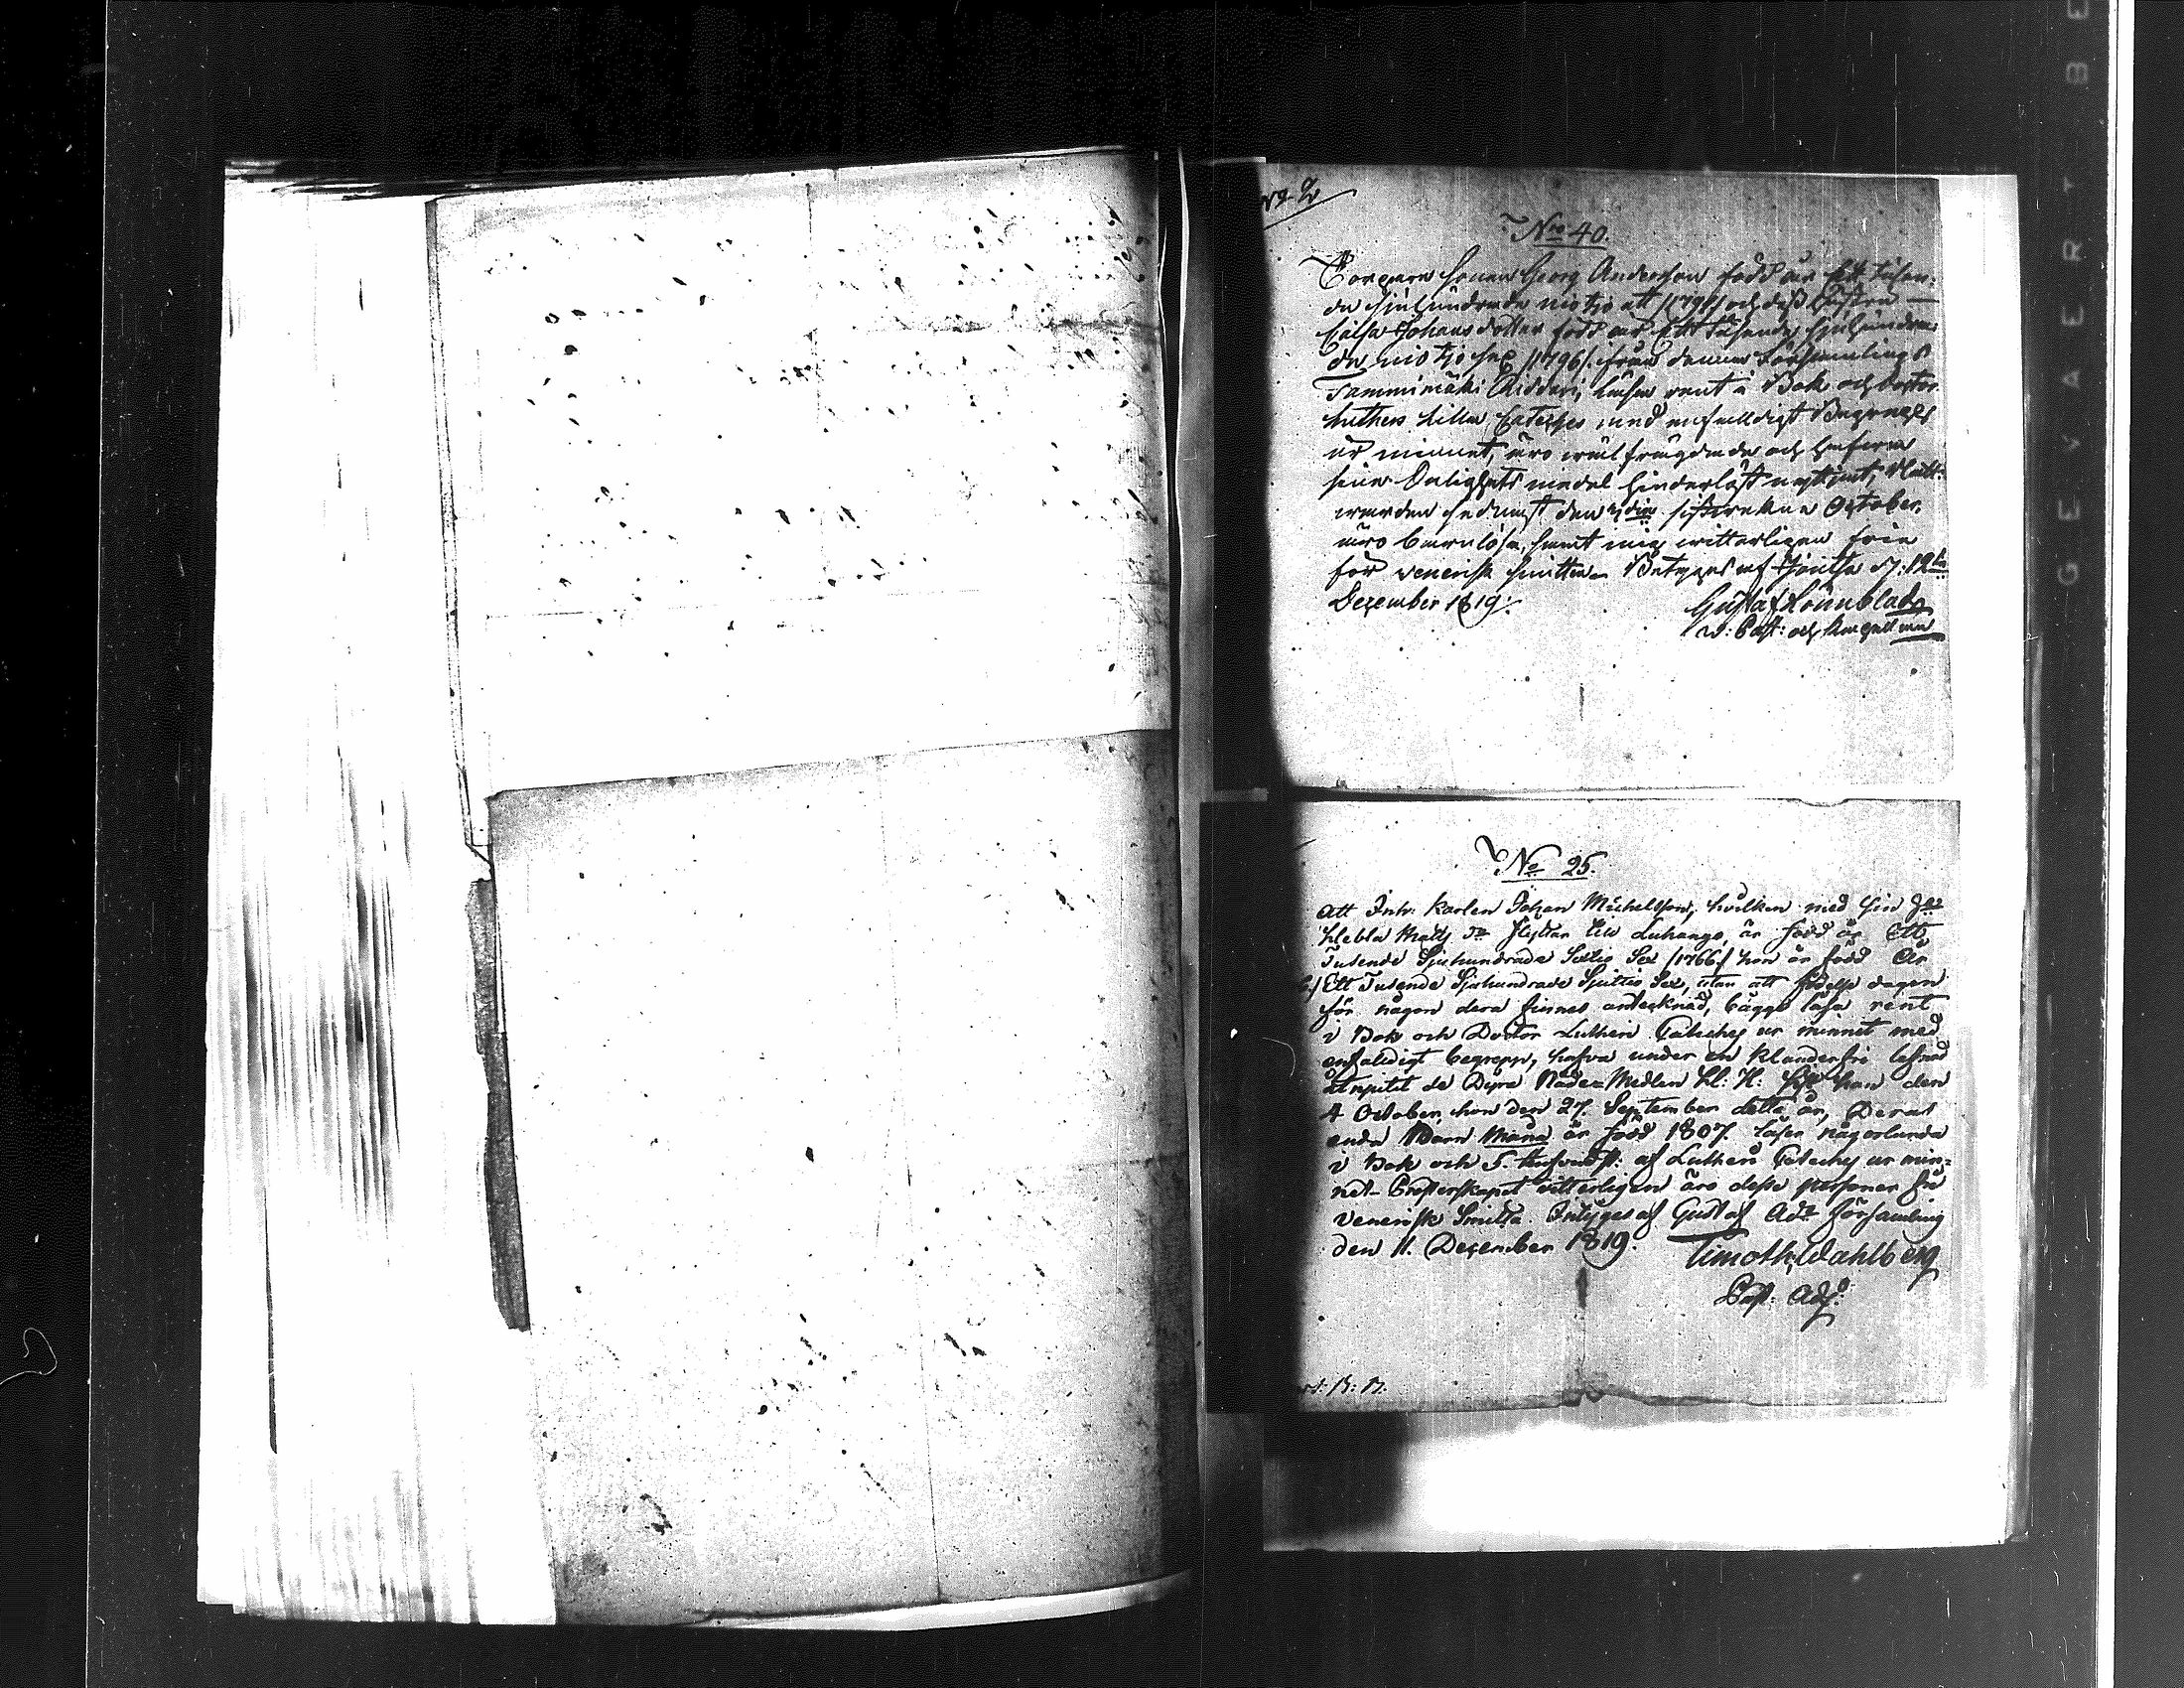 Nro 40.
Torpare sonen Georg Andersson född år Ett tusen-
de sjuhundrade nio tjo ett /1791/ och dess hustru
Caisa Johansdotter född år Ett tusende sjuhundra-
de nio tjo sex /1796/. från denna Församlings
Tammimäki läsa rent i Bok och Doctor
Luthers lilla Cateches med enfaldigt Begrepp
ur minnet, äro wäl frägdade och hafwa
sina Salighets medel hinderlöst nyttjat, Natt-
warden sednast den sistwekne October,
äro barnlösa, samt mig witterligen fria
för venerisk smitta. Betygas af Joutsa d: 12te
December 1819.
Gustaf Lönnblad
v: Past: och Capellan
No 25.
Att Inh: karlen Johan Michelsson, hvilken med sin
Matts dr flyttar till Luhango, är född år Ett
Tusende Sjuhundrade Sextio Sex /1766/ hon är född År
Ett Tusende Sjuhundrade Sjuttio Sex, utan att födelse dagen
för någon dera finnes antecknad, bägge läsa rent
i Bok och Doctor Luthers Cateches ur minnet med
enfaldigt begrepp, hafva under en klanderfri lefnad
åtnjutit de Dyra Nåde-Medlen H: H: sist han den
4 October, hon den 27. September detta år, Deras
enda Barn Maria är född 1807. läser någorlunda
i Bok och 5. af Luthers Cateches ur min-
net- Presterskapet vitterligen äro desse personer fri
Venerisk Smitta. Intygas af Gustaf Ads Församling
den 11. December 1819. Timoth. Wahlberg
Past: Adj: